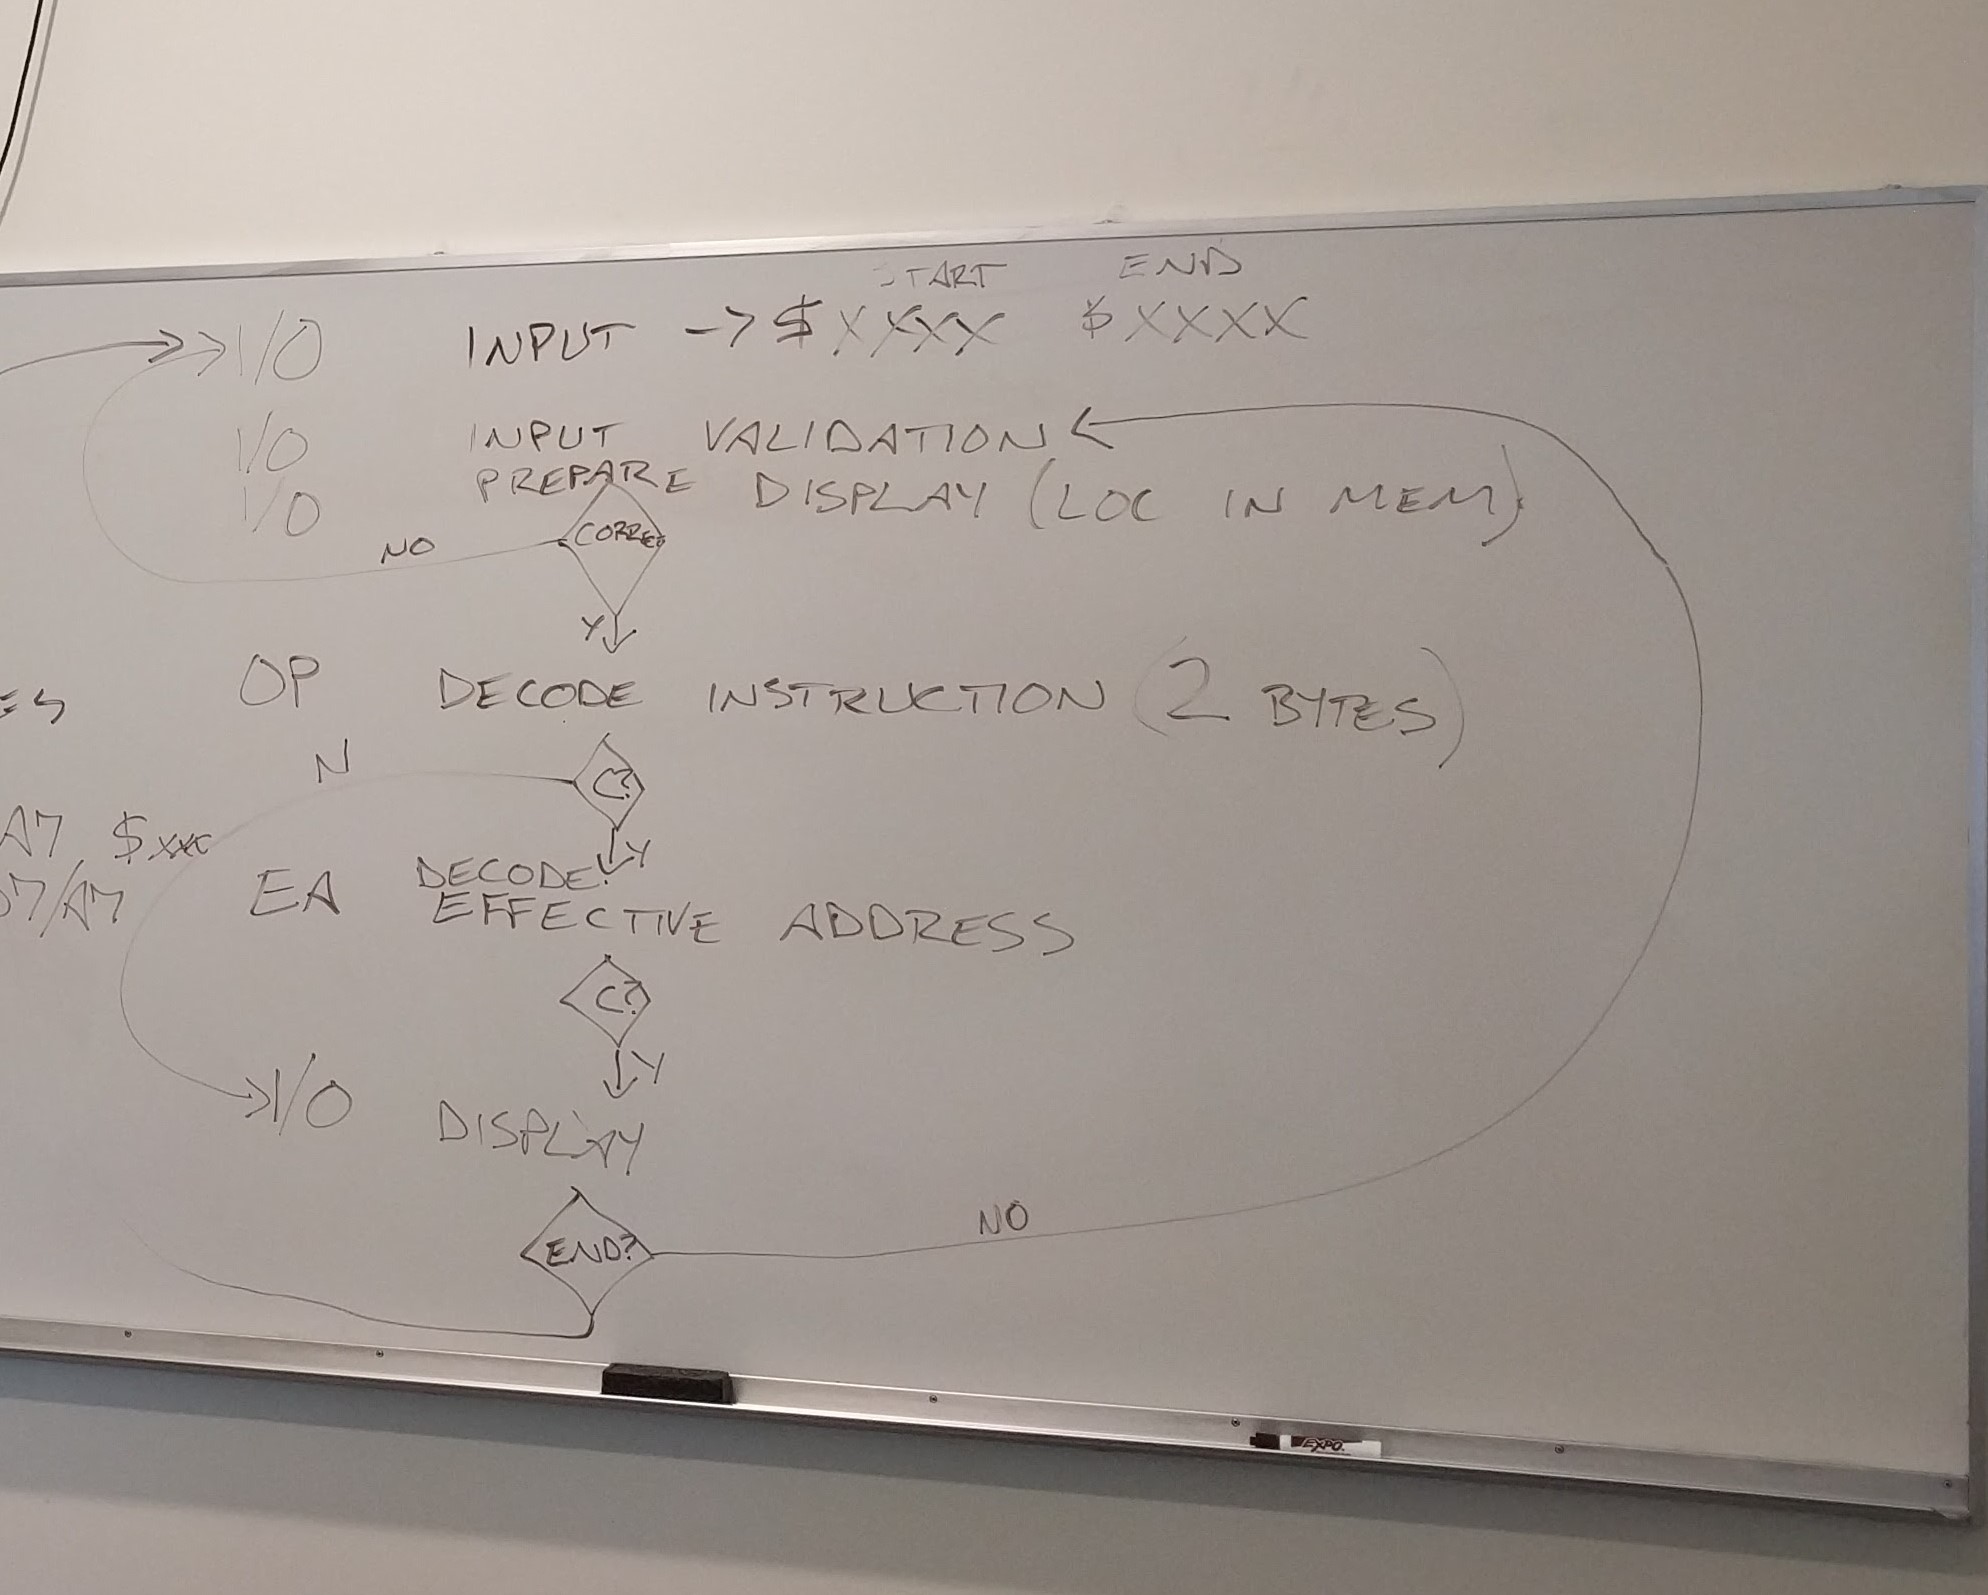 START END
I/O INPUT -> $XXXX $XXXX
I/O INPUT VALIDATION
I/O PREPARE DISPLAY (LOC IN MEM)
NO CORREC
Y
OP DECODE INSTRUCTION (2 BYTES)
ES
N C?
Y
A7, $xxx
D7/A7
EA DECODE
EFFECTIVE ADDRESS
C?
Y
I/O DISPLAY
END? NO
EXPO